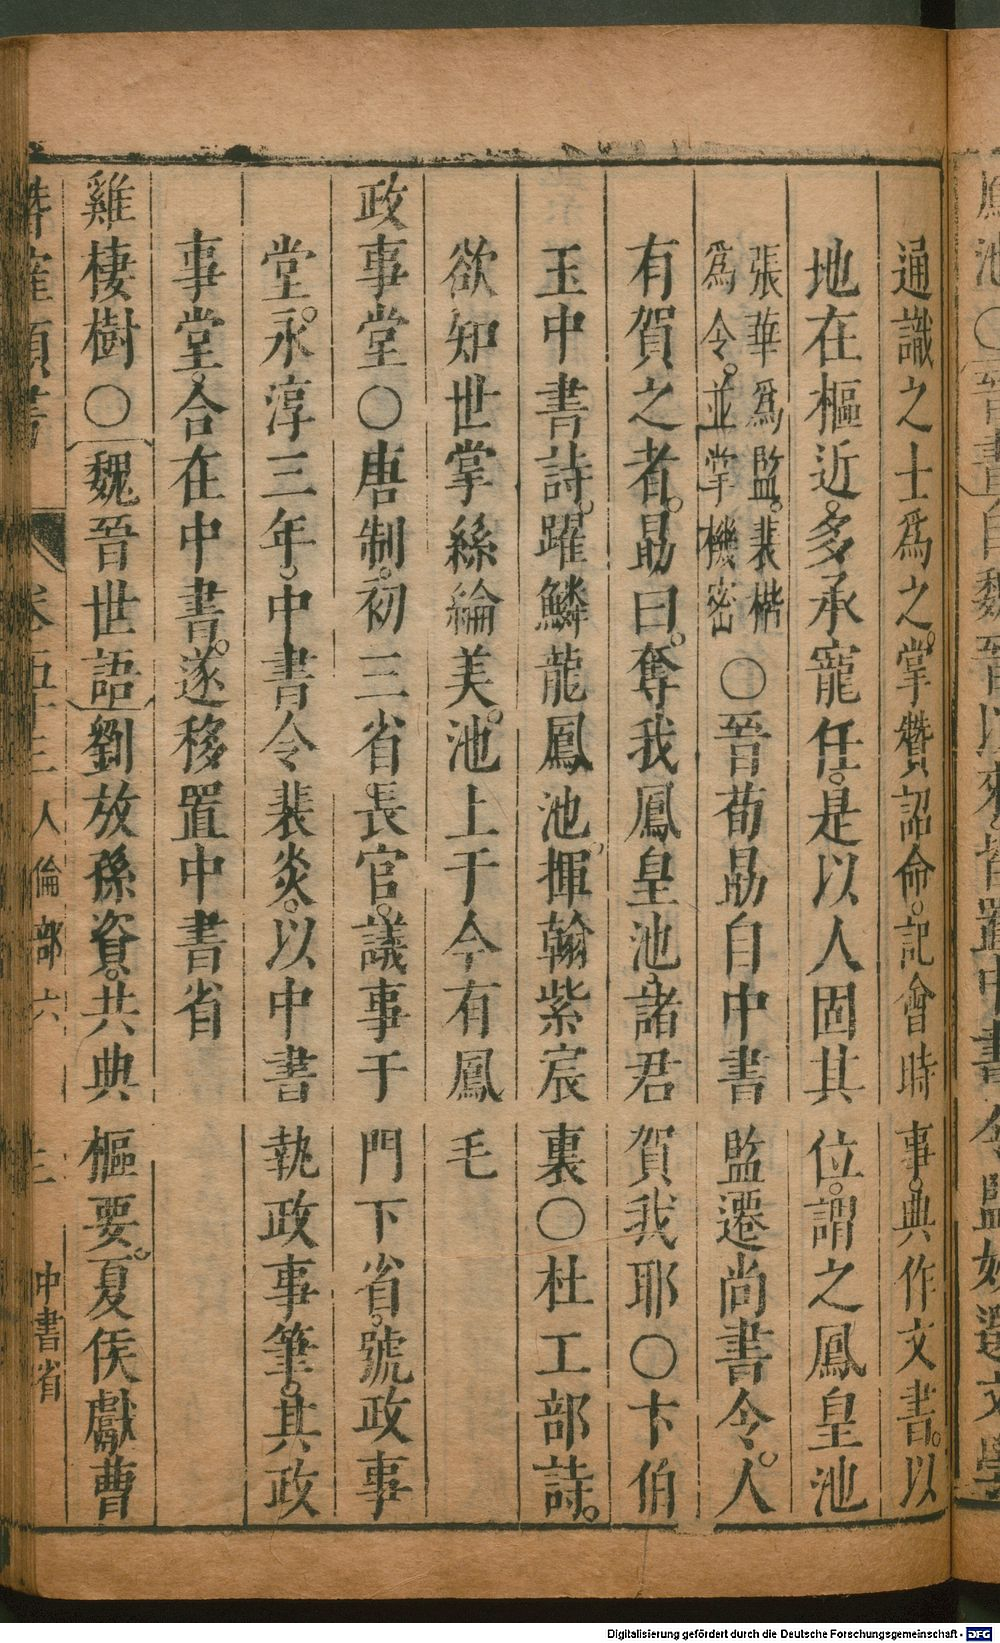 鳳池〇晉書自魏晉以來皆置中書令監妙選文學
通識之士爲之。掌贊詔命。記會時事。典作文書。以
地在樞近。多承寵任。是以人固其位。謂之鳳皇池
張華爲監。裴楷
爲令。並掌機密
〇晉荀勗自中書監遷尚書令。人
有賀之者。勗曰。奪我鳳皇池。諸君賀我耶〇卞伯
玉中書詩。躍鱗龍鳳池。揮翰紫宸裏〇杜工部詩。
欲知世掌絲綸美。池上于今有鳳毛
政事堂〇唐制。初三省長官。議事于門下省。號政事
堂。永淳三年。中書令裴炎。以中書執政事筆。其政
事堂。合在中書。遂移置中書省
雞棲樹〇魏晉世語劉放孫資。共典樞要。夏侯獻曹
卷五十三 人倫部六 中書省
Digitalisierung gefördert durch die Deutsche Forschungsgemeinschaft - DFG